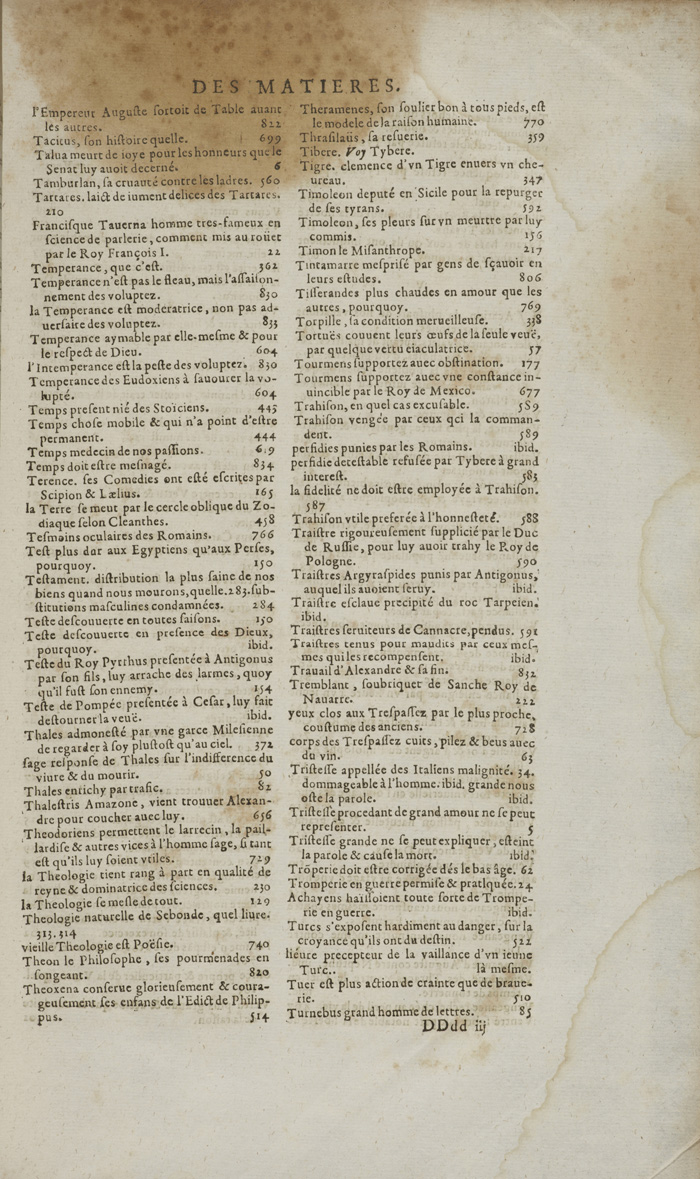 DES MATIERES.
l'Empereur Auguste sortoit de Table auant
les autres. 822
Tacitus, son histoire quelle. 699
Talua meurt de ioye pour les honneurs que le
Senat luy auoit decerné. 6
Tamburlan, sa cruauté contre les ladres. 560
Tartares. laict de iument delices des Tartares.
210
Francisque Tauerna homme tres-fameux en
science de parlerie, comment mis au rouët
par le Roy François I. 22
Temperance, que c'est. 362
Temperance n'est pas le fleau, mais l'assaison-
nement des voluptez. 830
la Temperance est moderatrice, non pas ad-
uersaire des voluptez. 833
Temperance aymable par elle-mesme & pour
le respect de Dieu. 604
l'Intemperance est la peste des voluptez. 830
Temperance des Eudoxiens à sauourer la vo-
lupté. 604
Temps present nié des Stoiciens. 445
Temps chose mobile & qui n'a point d'estre
permanent. 444
Temps medecin de nos passions.
Temps doit estre mesnagé. 834
Terence. ses Comedies ont esté escrites par
Scipion & Lælius. 165
la Terre se meut par le cercle oblique du Zo-
diaque selon Cleanthes. 458
Tesmoins oculaires des Romains. 766
Test plus dur aux Egyptiens qu'aux Perses,
pourquoy. 150
Testament. distribution la plus saine de nos
biens quand nous mourons, quelle. 283. sub-
stitutions masculines condamnées. 284
Teste descouuerte en toutes saisons. 150
Teste descouuerte en presence des Dieux,
pourquoy. ibid.
Teste du Roy Pyrrhus presentée à Antigonus
par son fils, luy arrache des larmes, quoy
qu'il fust son ennemy. 154
Teste de Pompée presentée à Cesar, luy fait
destourner la veuë. ibid.
Thales admonesté par vne garce Milesienne
de regarder à soy plustost qu'au ciel. 372
sage response de Thales sur l'indifference du
viure & du mourir. 50
Thales enrichy par trafic. 82
Thalestris Amazone, vient trouuer Alexan-
dre pour coucher auec luy. 656
Theodoriens permettent le larrecin, la pail-
lardise & autres vices à l'homme sage, si tant
est qu'ils luy soient vtiles. 729
la Theologie tient rang à part en qualité de
reyne & dominatrice des sciences. 230
la Theologie se mesle de tout. 129
Theologie naturelle de Sebonde, quel liure.
313.314
vieille Theologie est Poësie. 740
Theon le Philosophe, ses pourmenades en
songeant. 820
Theoxena conserue glorieusement & coura-
geusement ses enfans de l'Edict de Philip-
pus. 514
Theramenes, son soulier bon à tous pieds, est
le modele de la raison humaine. 770
Thrasilaüs, sa resuerie. 359
Tibere. Voy Tybere.
Tigre. clemence d'vn Tigre enuers vn che-
ureau. 347
Timoleon deputé en Sicile pour la repurger
de ses tyrans. 592
Timoleon, ses pleurs sur vn meurtre par luy
commis. 156
Timon le Misanthrope. 217
Tintamarre mesprisé par gens de sçauoir en
leurs estudes. 806
Tisserandes plus chaudes en amour que les
autres, pourquoy. 769
Torpille, sa condition merueilleuse. 338
Tortuës couuent leurs œufs de la seule veuë,
par quelque vertu eiaculatrice. 57
Tourmens supportez auec obstination. 177
Tourmens supportez auec vne constance in-
uincible par le Roy de Mexico. 677
Trahison, en quel cas excusable. 589
Trahison vengée par ceux qci la comman-
dent. 589
perfidies punies par les Romains. ibid.
perfidie detestable refusée par Tybere à grand
interest. 583
la fidelité ne doit estre employée à Trahison.
587
Trahison vtile preferée à l'honnesteté. 588
Traistre rigoureusement supplicié par le Duc
de Russie, pour luy auoir trahy le Roy de
Pologne. 590
Traistres Argyraspides punis par Antigonus,
auquel ils auoient seruy. ibid.
Traistre esclaue precipité du roc Tarpeien.
ibid.
Traistres seruiteurs de Cannacre, pendus. 591
Traistres tenus pour maudits par ceux mes-
mes qui les recompensent. ibid.
Trauail d'Alexandre & sa fin. 832
Tremblant, soubriquet de Sanche Roy de
Nauarre. 222
yeux clos aux Trespassez par le plus proche,
coustume des anciens. 728
corps des Trespassez cuits, pilez & beus auec
du vin. 63
Tristesse appellée des Italiens malignité. 34.
dommageable à l'homme. ibid. grande nous
oste la parole. ibid.
Tristesse procedant de grand amour ne se peut
representer. 5
Tristesse grande ne se peut expliquer, esteint
la parole & cause la mort. ibid.
Trôperie doit estre corrigée dés le bas âge. 62
Tromperie en guerre permise & pratlquée. 24
Achayens haïssoient toute sorte de Trompe-
rie en guerre. ibid.
Turcs s'exposent hardiment au danger, sur la
croyance qu'ils ont du destin. 522
liéure precepteur de la vaillance d'vn ieune
Turc.. là mesme.
Tuer est plus action de crainte que de braue-
rie. 510
Turnebus grand homme de lettres. 85
DDdd iij